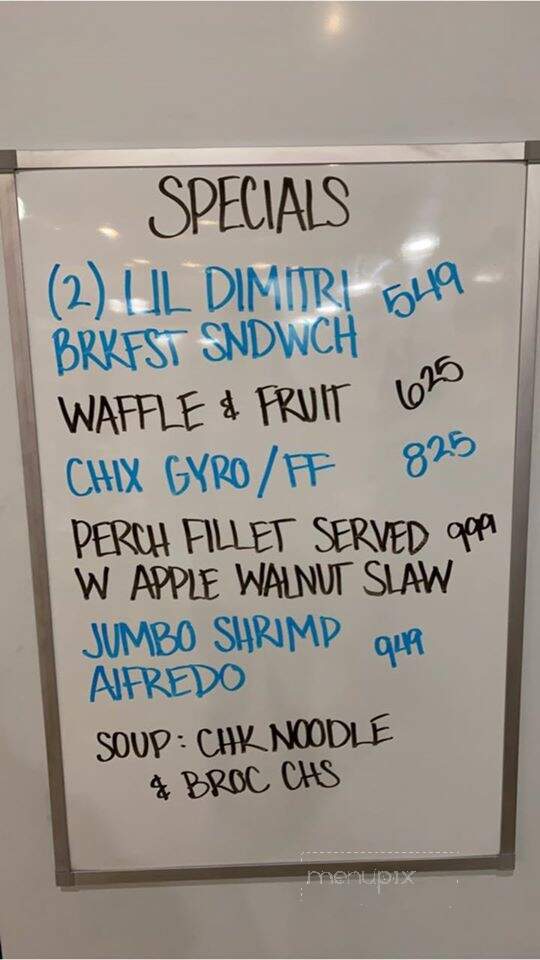 SPECIALS
(2) LIL DIMITRI 549
BRKFST SNDWCH
WAFFLE & FRUIT 625
CHIX GYRO/FF 825
PERCH FILLET SERVED 999
W APPLE WALNUT SLAW
JUMBO SHRIMP 949
AlFREDO
SOUP: CHK NOODLE
& BROC CHS
menupix